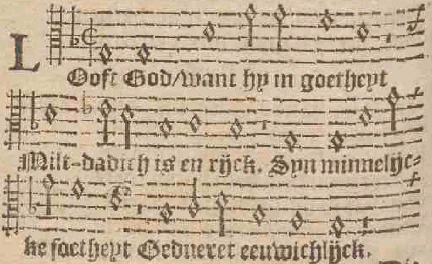 LOoft God/want hy in goetheyt
Milt-dadich is en rijck. Syn minnelijc-
ke soetheyt Gedueret eeuwichlijck.